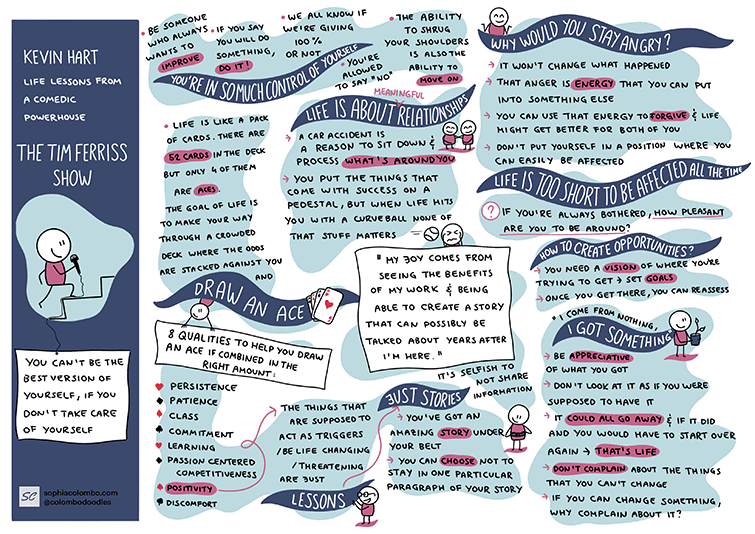 KEVIN HART
LIFE LESSONS FROM
A COMEDIC
POWERHOUSE
THE TIM FERRISS
SHOW
YOU CAN'T BE THE
BEST VERSION OF
YOURSELF, IF YOU
DON'T TAKE CARE
OF YOURSELF
SC
sophiacolombo.com
@colombodoodles
• BE SOMEONE
WHO ALWAYS
WANTS TO
IMPROVE
• IF YOU SAY
YOU WILL DO
SOMETHING,
DO IT!
• WE ALL KNOW IF
WE'RE GIVING
100%
OR NOT
• YOU'RE
ALLOWED
TO SAY "NO"
• THE ABILITY
TO SHRUG
YOUR SHOULDERS
IS ALSO THE
ABILITY TO
MOVE ON
YOU'RE IN SO MUCH CONTROL OF YOURSELF
• LIFE IS LIKE A PACK
OF CARDS. THERE ARE
52 CARDS IN THE DECK
BUT ONLY 4 OF THEM
ARE ACES.
THE GOAL OF LIFE IS
TO MAKE YOUR WAY
THROUGH A CROWDED
DECK WHERE THE ODDS
ARE STACKED AGAINST YOU
AND
DRAW AN ACE
8 QUALITIES TO HELP YOU DRAW
AN ACE IF COMBINED IN THE
RIGHT AMOUNT:
♥ PERSISTENCE
♠ PATIENCE
♠ CLASS
♣ COMMITMENT
♥ LEARNING
♦ PASSION CENTERED
COMPETITIVENESS
♠ POSITIVITY
♠ DISCOMFORT
MEANINGFUL
LIFE IS ABOUT RELATIONSHIPS
→ A CAR ACCIDENT IS
A REASON TO SIT DOWN &
PROCESS WHAT'S AROUND YOU
→ YOU PUT THE THINGS THAT
COME WITH SUCCESS ON A
PEDESTAL, BUT WHEN LIFE HITS
YOU WITH A CURVEBALL NONE OF
THAT STUFF MATTERS
" MY JOY COMES FROM
SEEING THE BENEFITS
OF MY WORK & BEING
ABLE TO CREATE A STORY
THAT CAN POSSIBLY BE
TALKED ABOUT YEARS AFTER
I'M HERE. "
IT'S SELFISH TO
NOT SHARE
INFORMATION
THE THINGS THAT
ARE SUPPOSED TO
ACT AS TRIGGERS
/BE LIFE CHANGING
/THREATENING
ARE JUST
LESSONS
JUST STORIES
→ YOU'VE GOT AN
AMAZING STORY UNDER
YOUR BELT
→ YOU CAN CHOOSE NOT TO
STAY IN ONE PARTICULAR
PARAGRAPH OF YOUR STORY
WHY WOULD YOU STAY ANGRY?
→ IT WON'T CHANGE WHAT HAPPENED
→ THAT ANGER IS ENERGY THAT YOU CAN PUT
INTO SOMETHING ELSE
→ YOU CAN USE THAT ENERGY TO FORGIVE & LIFE
MIGHT GET BETTER FOR BOTH OF YOU
→ DON'T PUT YOURSELF IN A POSITION WHERE YOU
CAN EASILY BE AFFECTED
LIFE IS TOO SHORT TO BE AFFECTED ALL THE TIME
? IF YOU'RE ALWAYS BOTHERED, HOW PLEASANT
ARE YOU TO BE AROUND?
HOW TO CREATE OPPORTUNITIES?
→ YOU NEED A VISION OF WHERE YOU'RE
TRYING TO GET → SET GOALS
→ ONCE YOU GET THERE, YOU CAN REASSESS
"I COME FROM NOTHING,
I GOT SOMETHING"
→ BE APPRECIATIVE
OF WHAT YOU GOT
→ DON'T LOOK AT IT AS IF YOU WERE
SUPPOSED TO HAVE IT
→ IT COULD ALL GO AWAY & IF IT DID
AND YOU WOULD HAVE TO START OVER
AGAIN → THAT'S LIFE
→ DON'T COMPLAIN ABOUT THE THINGS
THAT YOU CAN'T CHANGE
→ IF YOU CAN CHANGE SOMETHING,
WHY COMPLAIN ABOUT IT?